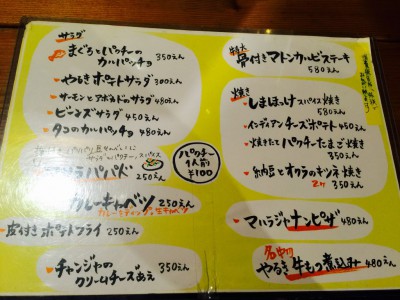 サラダ
まぐろとパクチーのカルパッチョ 350えん
やるきポテトサラダ 300えん
サーモンとアボカドのサラダ 480えん
ビーンズサラダ 450えん
タコのカルパッチョ 480えん
パパド 250えん
カレーキャベツ 250えん
皮付きポテトフライ 250えん
チャンジャの
クリームチーズあえ 350えん
パクチー
1人前
¥100
骨付きマトンカルビステーキ
580えん
焼き
しまほっけスパイス焼き
580えん
インディアンチーズポテト 450えん
焼きたてパクチーたまご焼き
350えん
納豆とオクラのギンネ焼き
350えん
マハラジャナンピザ 480えん
名物
やるき牛もつ煮込み 480えん